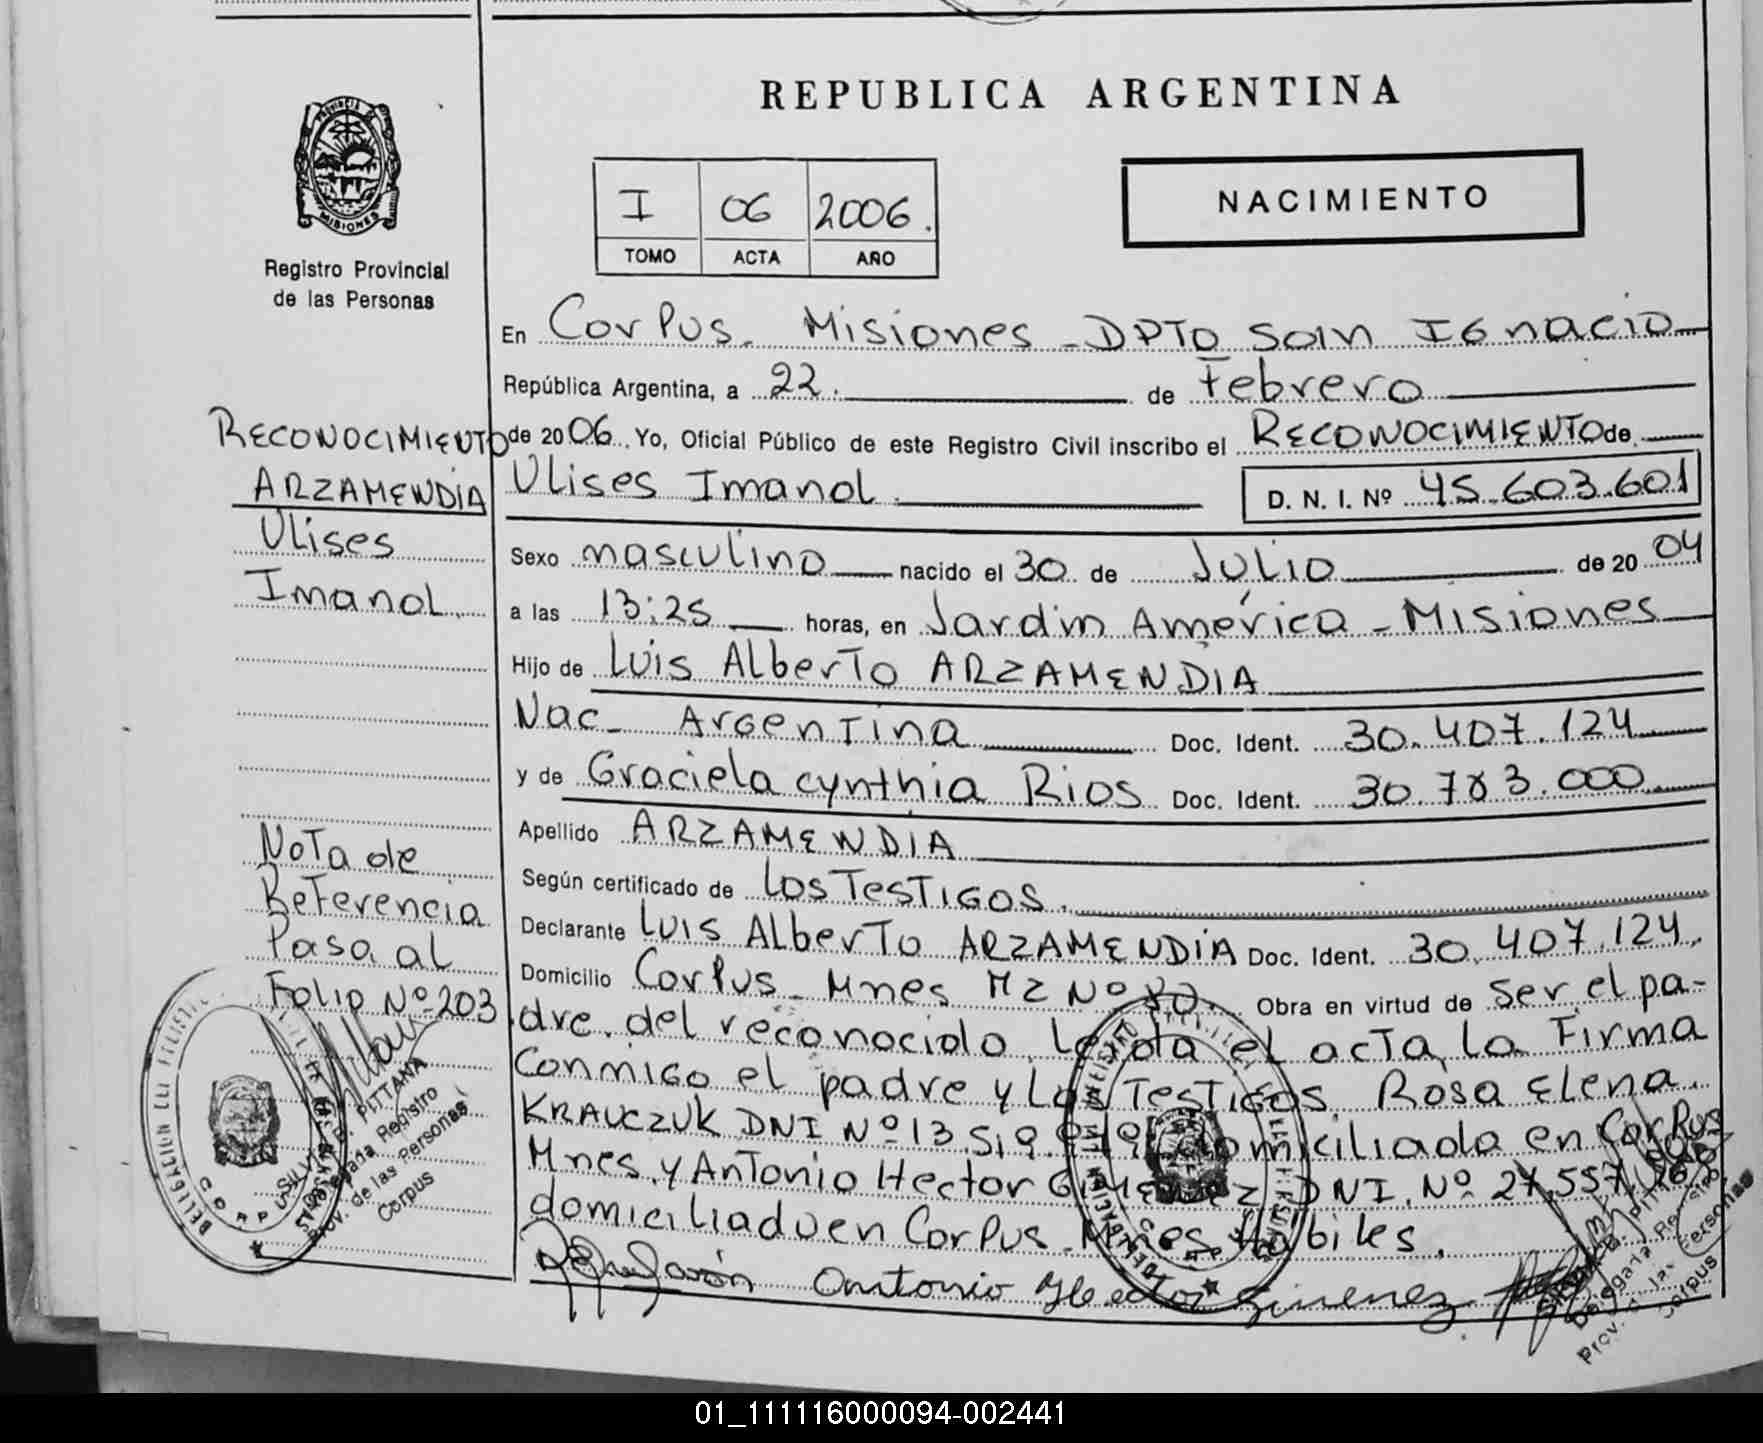 REPUBLICA ARGENTINA
PROVINCIA DE
MISIONES
Registro Provincial
de las Personas
I 06 2006.
TOMO ACTA AÑO
NACIMIENTO
En Corpus. Misiones - DPTO San Ignacio
República Argentina, a 22. de Febrero
de 2006. Yo, Oficial Público de este Registro Civil inscribo el RECONOCIMIENTO de
Ulises Imanol. D. N. I. Nº 45.603.601
Sexo masculino nacido el 30 de Julio de 2004
a las 13:25 horas, en Jardín América - Misiones
Hijo de Luis Alberto ARZAMENDIA
Nac - Argentina Doc. Ident. 30.407.124
y de Graciela cynthia Rios Doc. Ident. 30.783.000
Apellido ARZAMENDIA
Según certificado de Los Testigos.
Declarante Luis Alberto ARZAMENDIA Doc. Ident. 30.407.124.
Domicilio Corpus - Mnes Mz Nº Obra en virtud de ser el pa-
dre del reconocido. Leída el acta la Firma
Conmigo el padre y Los Testigos. Rosa Elena
KRAUCZUK DNI Nº 13.519. domiciliada en Corpus
Mnes. y Antonio Hector GIMENEZ DNI. Nº 27.557.
domiciliado en Corpus Mnes Hábiles.
Antonio Hector Gimenez
RECONOCIMIENTO
ARZAMENDIA
Ulises
Imanol.
Nota de
Referencia
Pasa al
Folio Nº 203
PITTANA
Registro
Prov. de las Personas
Corpus
DELEGACION
CORPUS
01_111116000094-002441